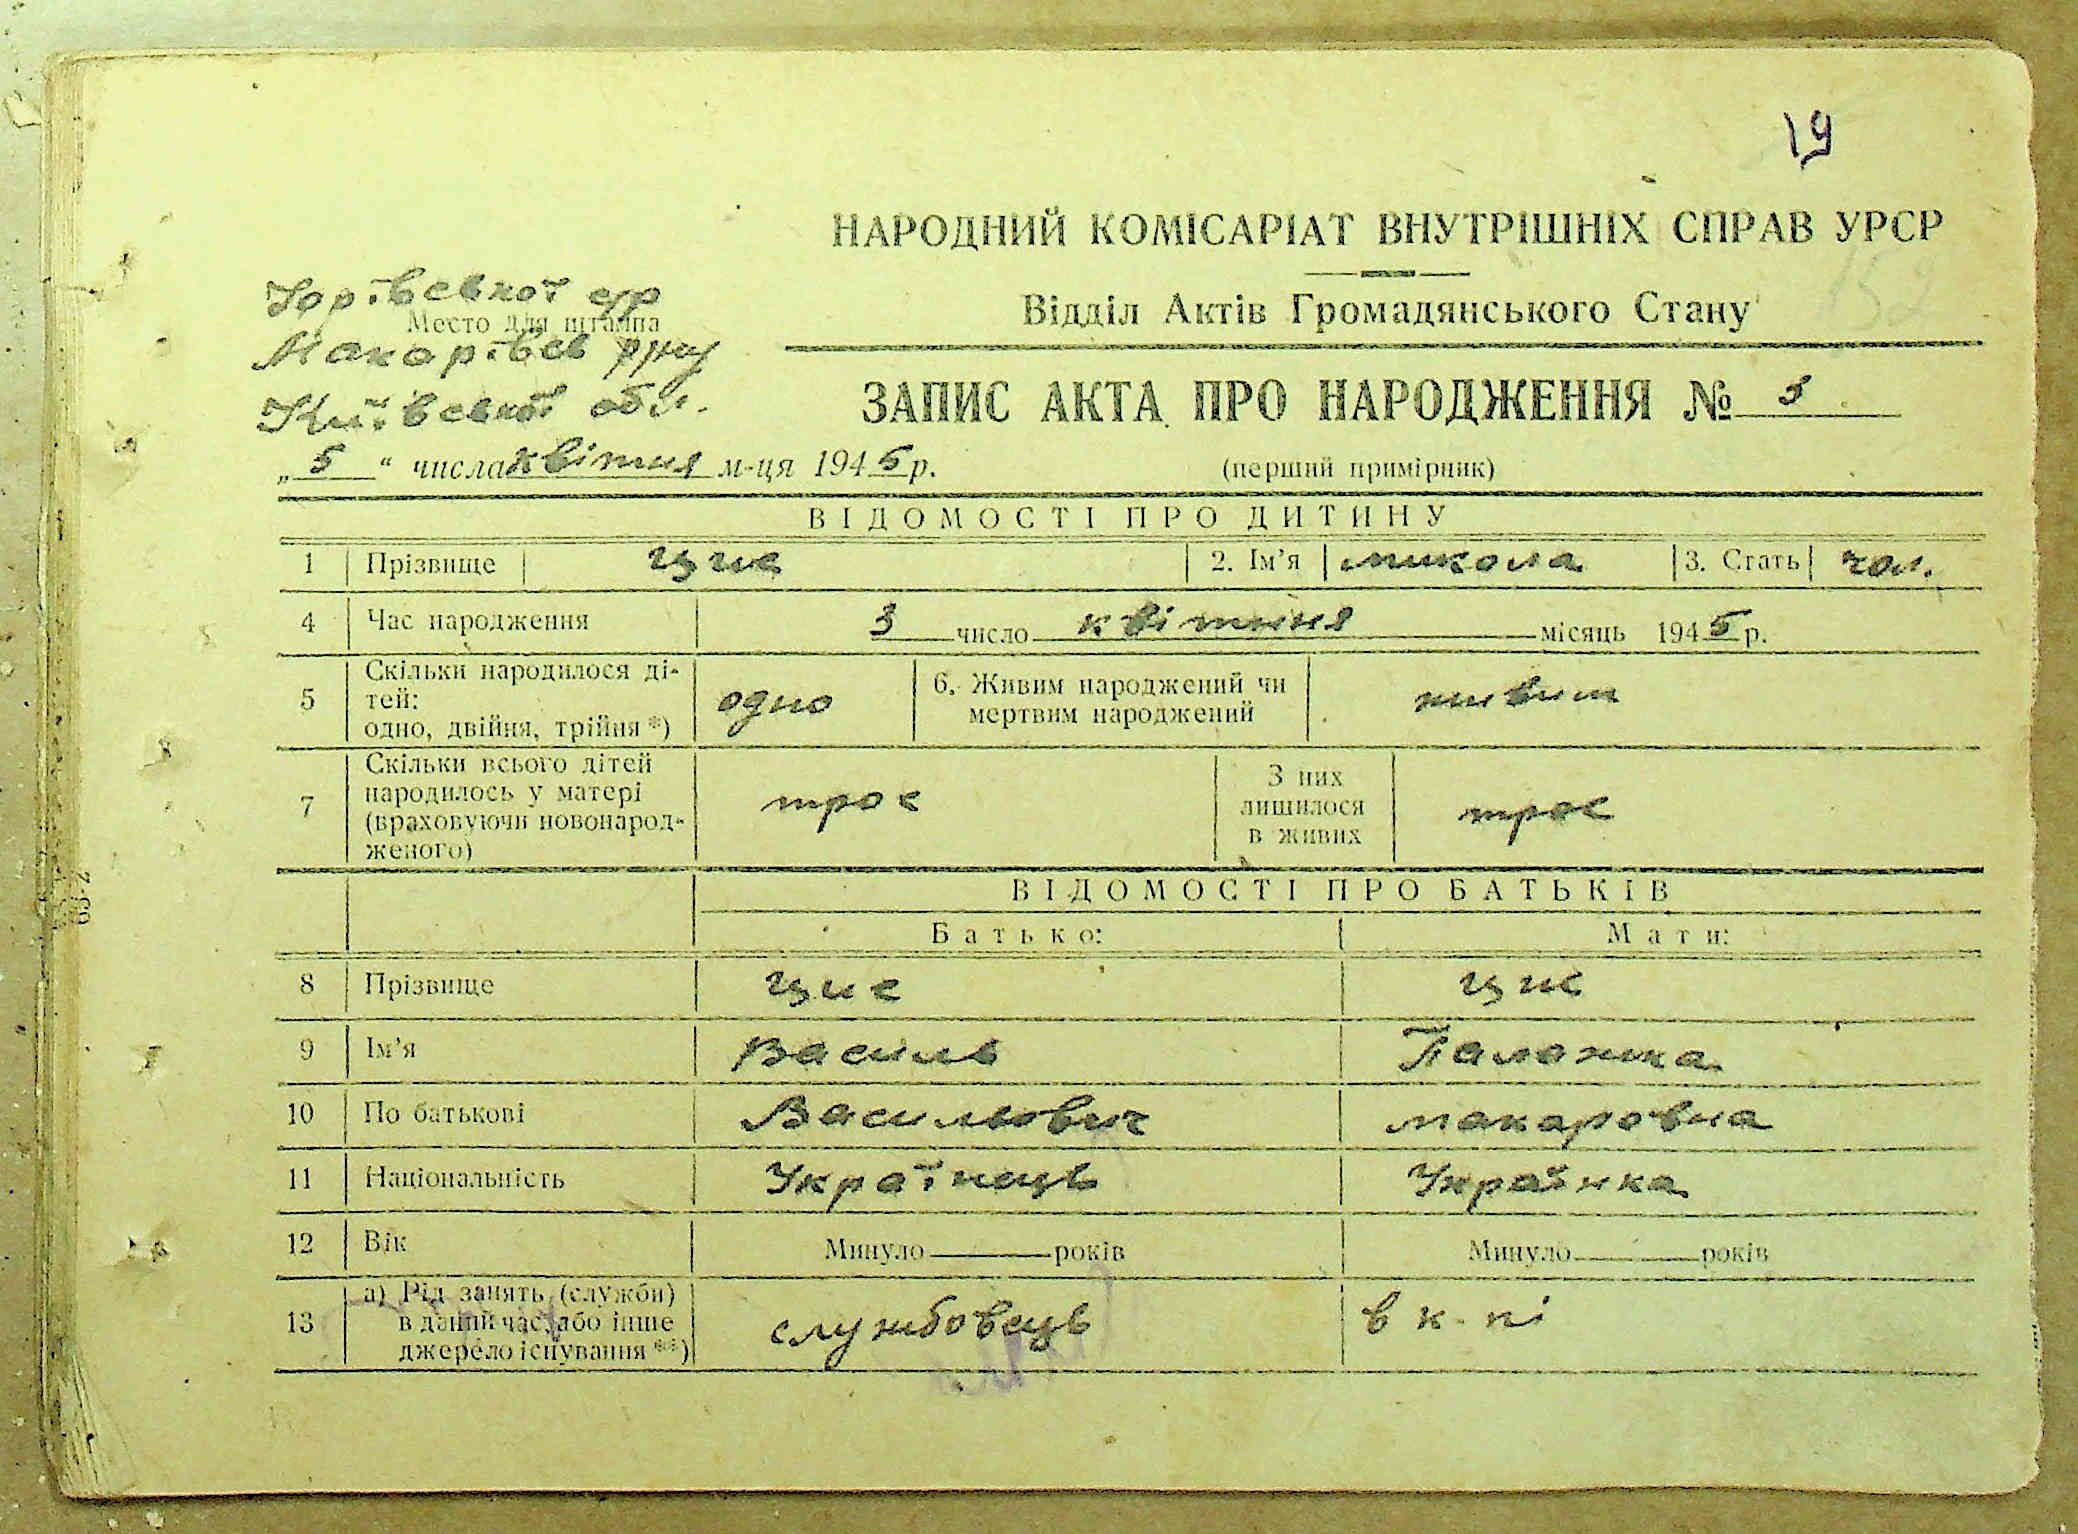 19
НАРОДНИЙ КОМІСАРІАТ ВНУТРІШНІХ СПРАВ УРСР
Відділ Актів Громадянського Стану
Юрівської с/р
Место для штампа
Макарівсь р-ну
Київської обл.
ЗАПИС АКТА ПРО НАРОДЖЕННЯ № 3
„5“ числа квітня м-ця 1945 р.
(перший примірник)
ВІДОМОСТІ ПРО ДИТИНУ
1 Прізвище Цис 2. Ім’я Микола 3. Стать чол.
4 Час народження 3 число квітння місяць 1945 р.
5 Скільки народилося ді-
тей:
одно, двійня, трійня *) одно
6. Живим народжений чи
мертвим народжений живим
7 Скільки всього дітей
народилось у матері
(враховуючи новонарод-
женого) троє
З них
лишилося
в живих троє
ВІДОМОСТІ ПРО БАТЬКІВ
Батько: Мати:
8 Прізвище Цис Цис
9 Ім’я Василь Палажка
10 По батькові Васильович Макаровна
11 Національність Українець Українка
12 Вік Минуло років Минуло років
13 а) Рід занять (служби)
в даний час або інше
джерело існування **) службовець в к-пі